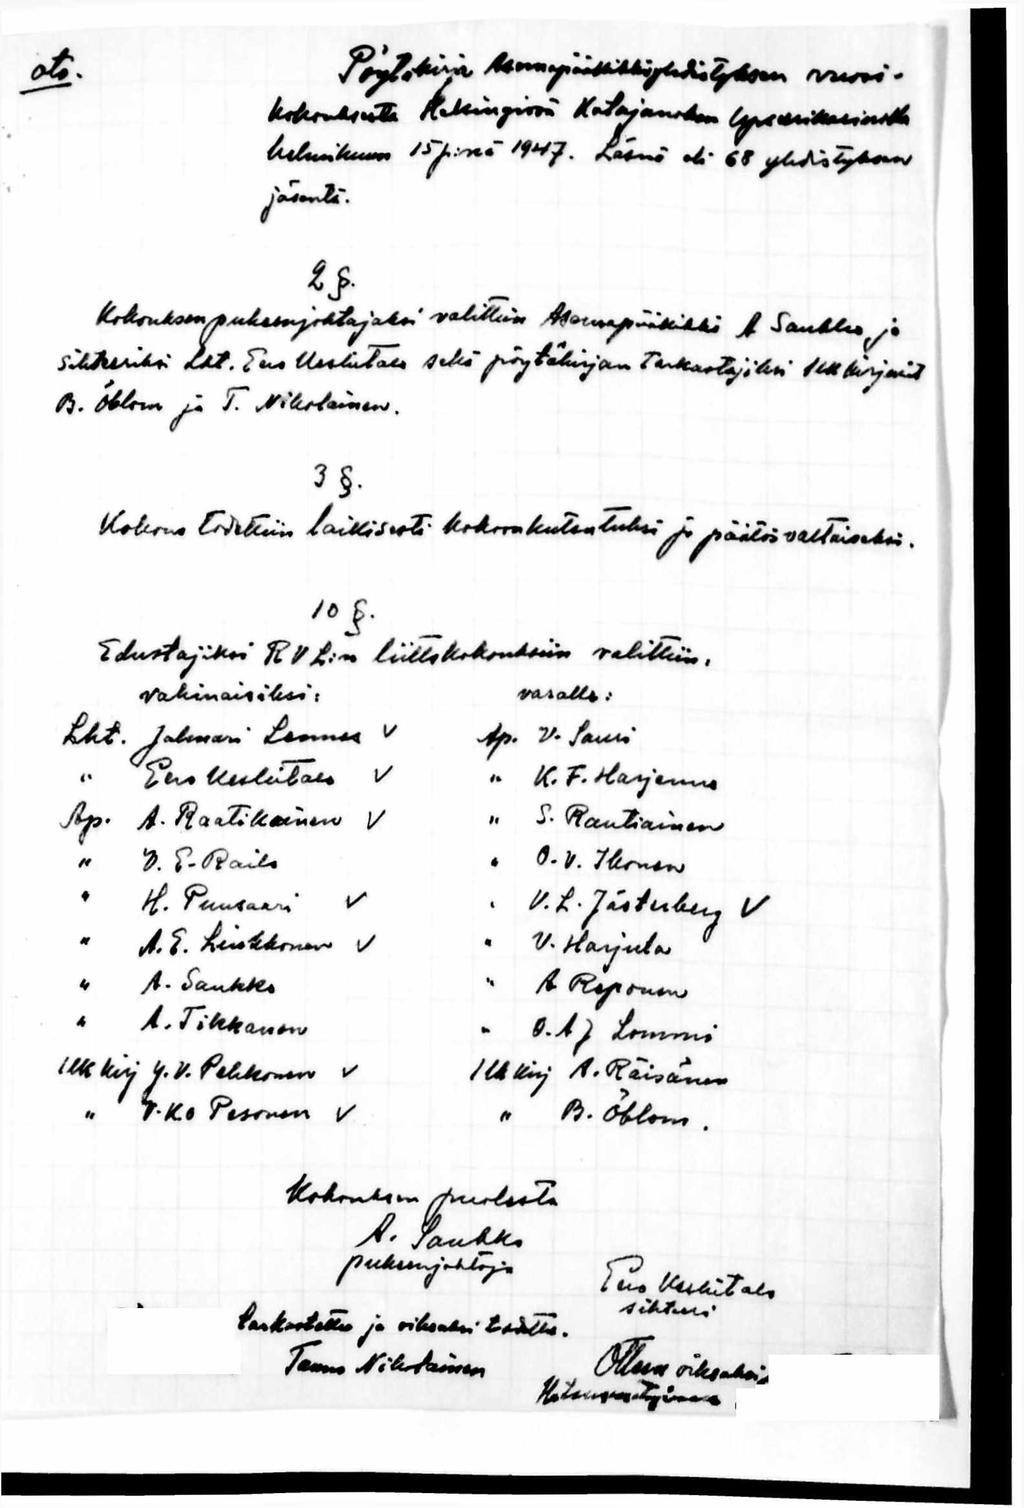 ote.
Pöytäkirja Asemapäällikköyhdistyksen vuosi-
kokouksesta Helsingissä Katajanokan
helmikuun 15 p:nä 1947. Läsnä oli 68 yhdistyksen
jäsentä.
2 §.
Kokouksen puheenjohtajaksi valittiin Asemapäällikkö A Saukko ja
Sihteeriksi Lht. Eero Uusiutalo sekä pöytäkirjan tarkastajiksi Ilk kirjurit
B. Öblom ja T. Nikolainen.
3 §.
Kokous todettiin laillisesti kokoonkutsutuksi ja päätösvaltaiseksi.
10 §.
Edustajiksi RVL:n liittokokouksiin valittiin,
vakinaisiksi: varalle:
Lht. Jalmari Lennes V Ap. V. Sauri
" Eero V " K. F. Harjanne
Ap. A. Raatikainen V " S. Rautiainen
" V. E. Railo " O. V. Ikonen
" H. Puusaari V " V. L. Jästerberg V
" A. E. V " V. Harjula
" A. Saukko " A Reponen
" A. Tikkanen " O. A J Lommi
Ilk kirj Y. V. Pelkonen V Ilk kirj A. Räisänen
" V. Ko Pesonen V " B. Öblom.
Kokouksen puolesta
A. Saukko
puheenjohtaja
Eero
sihteeri
Tarkastettu ja oikeaksi todettu.
Tauno Nikolainen Otteen oikeaksi